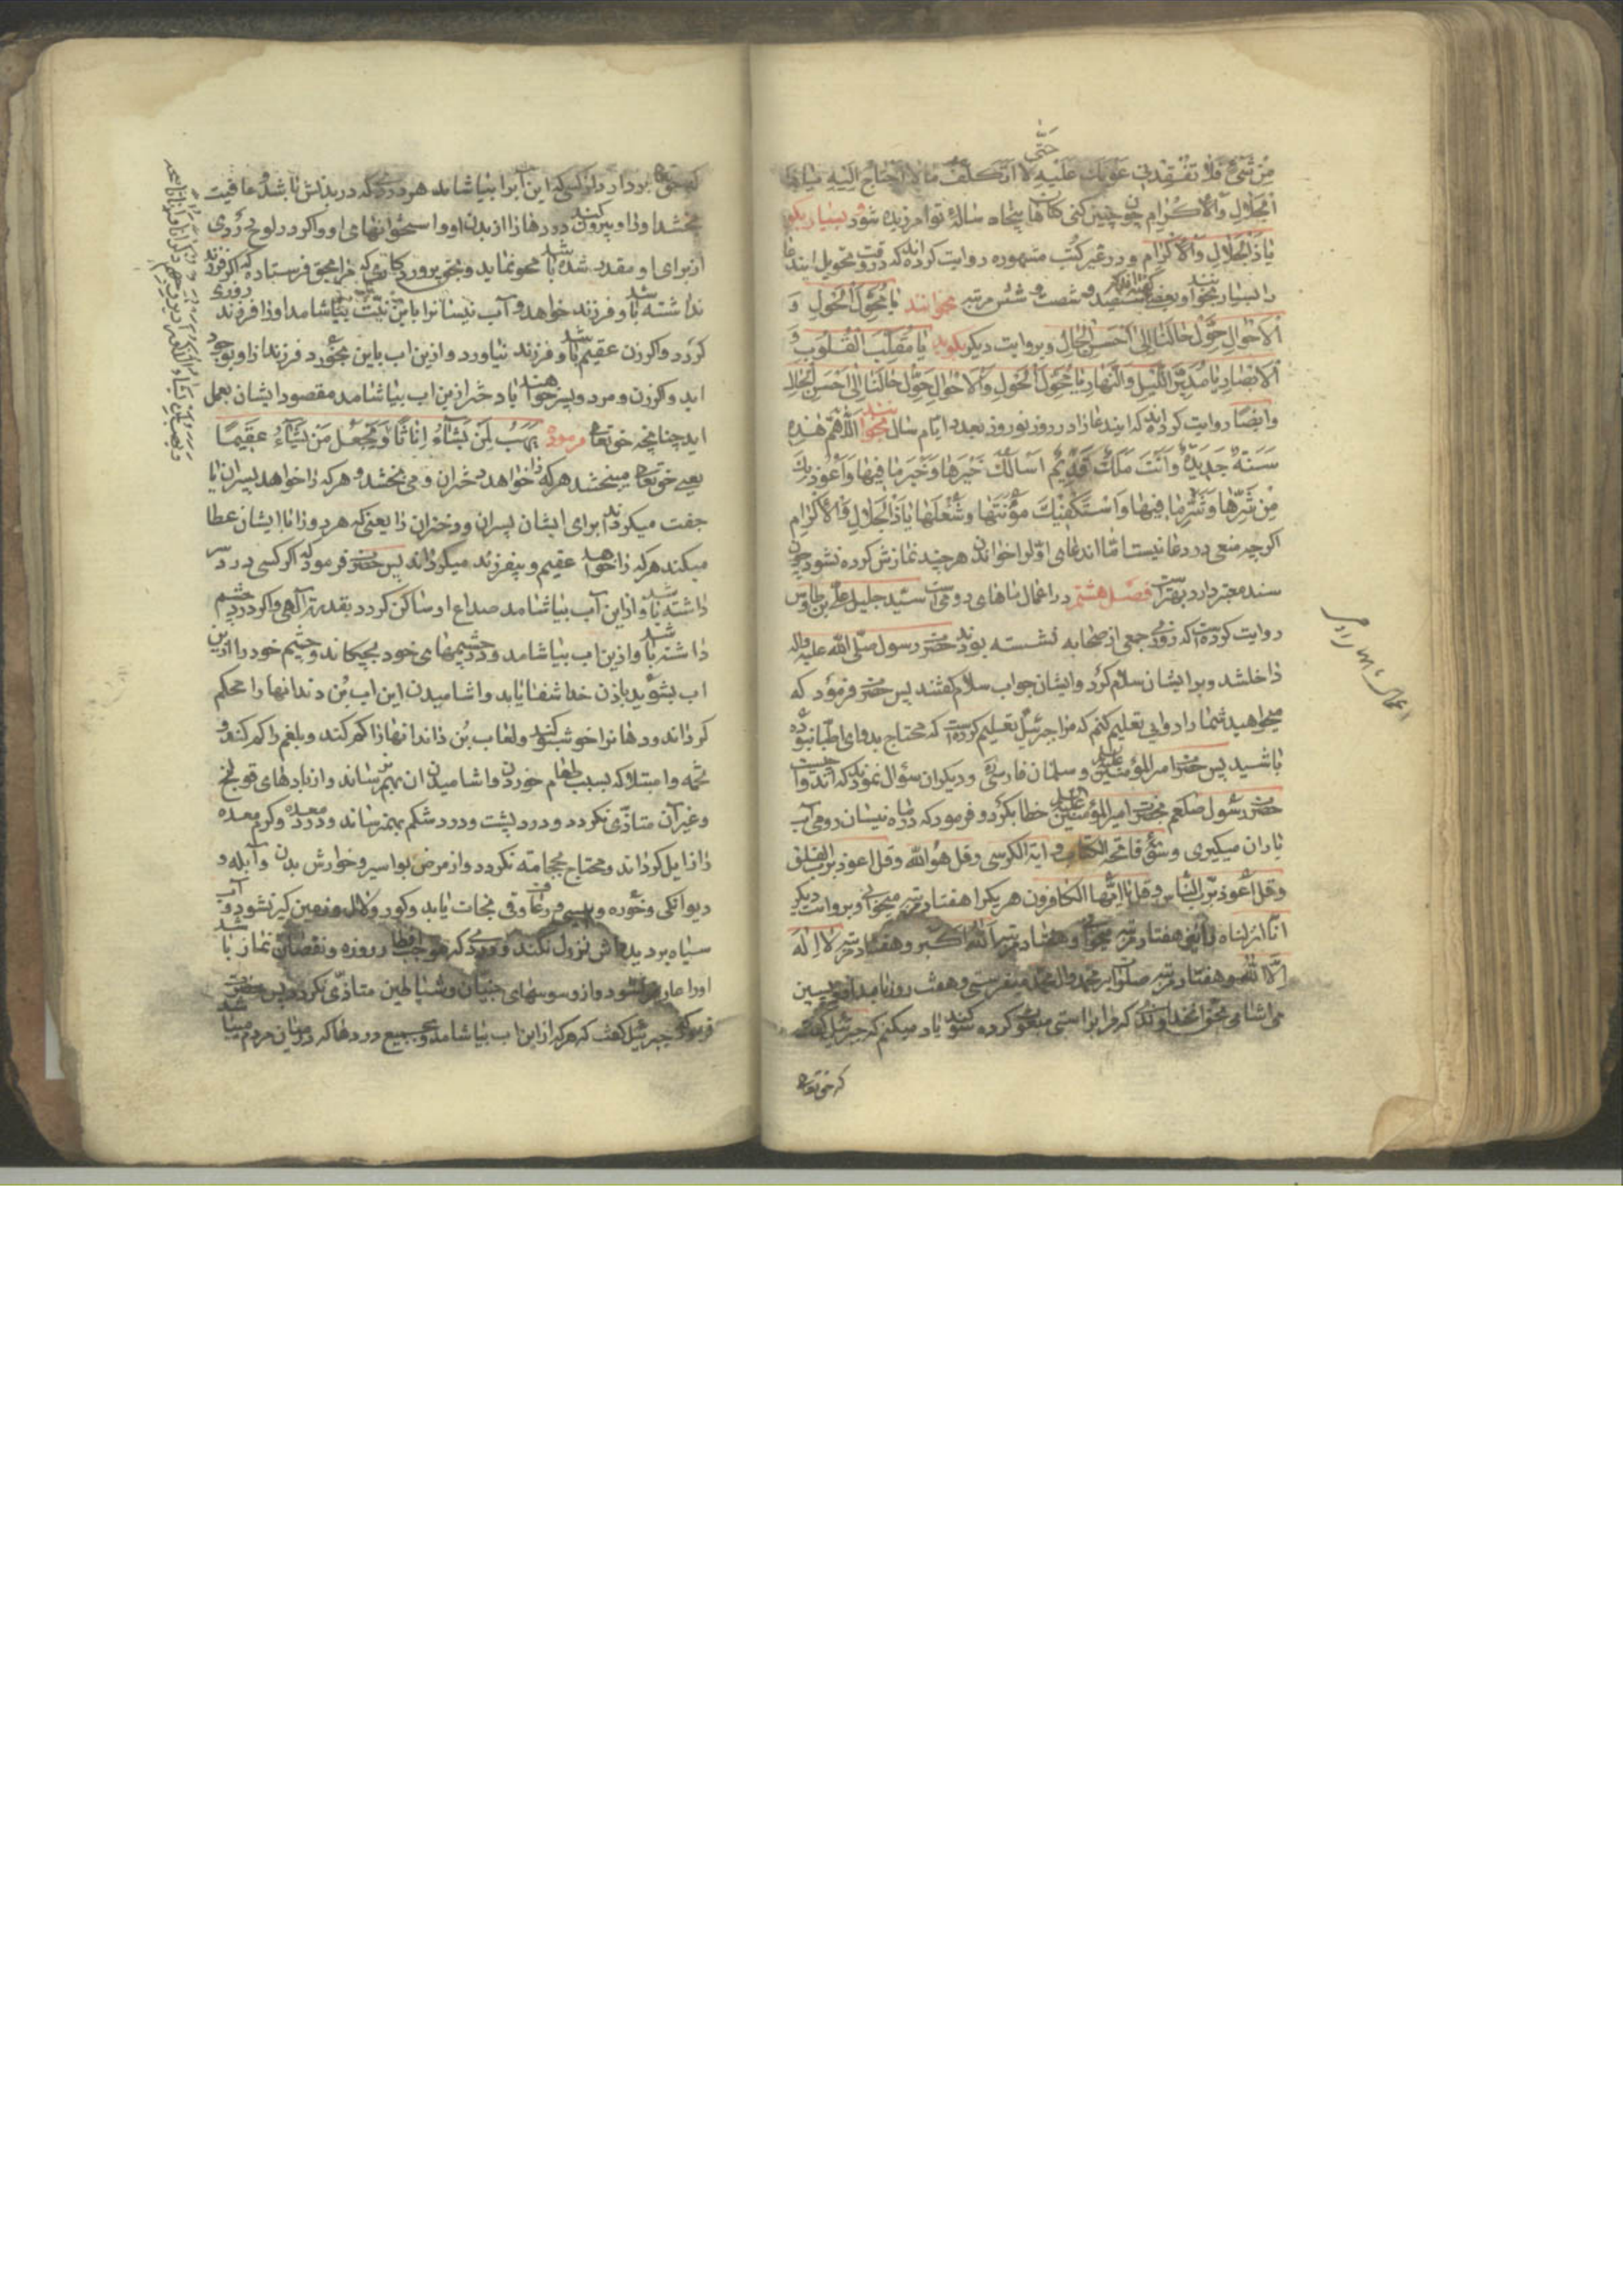 مِنْ شَیْءٍ فَلا تُفْقِدْنِی عَوْنَكَ عَلَیْهِ حَتّٰی لا اَتَکَلَّفَ مالا اَحْتاجُ اِلَیْهِ یاذا
الْجَلالِ وَالْاِکْرامِ چون چنین کنی کناهان پنجاه سالهٔ تو آمرزیده شود بسیار بکو
یاذَالْجَلالِ وَالْاِکْرامِ و در غیر کتب مشهوره روایت کرده‌اند که در وقت تحویل ایندعا
را بسیار بخوانند و بعضی کفته‌اند که سیصد و شصت و شش مرتبه بخوانند یا مُحَوِّلَ الْحَوْلِ وَ
الْاَحْوالِ حَوِّلْ حالَنا اِلیٰ اَحْسَنِ الْحالِ و بروایت دیکر بکوید یا مُقَلِّبَ الْقُلُوبِ وَ
الْاَبْصارِ یا مُدَبِّرَ اللَّیْلِ وَالنَّهارِ یا مُحَوِّلَ الْحَوْلِ وَالْاَحْوالِ حَوِّلْ حالَنا اِلیٰ اَحْسَنِ الْحالِ
وایضًا روایت کرده‌اند که ایندعا را در روز نوروز بعدد ایام سال بخوانند اَللّٰهُمَّ هٰذِهِ
سَنَةٌ جَدِیدَةٌ وَاَنْتَ مَلِكٌ قَدِیمٌ اَسْاَلُكَ خَیْرَها وَخَیْرَ ما فِیها وَاَعُوذُ بِكَ
مِنْ شَرِّها وَشَرِّ ما فِیها وَاَسْتَکْفِیكَ مَؤُنَتَها وَشُغْلَها یاذَالْجَلالِ وَالْاِکْرامِ
اکرچه منعی در دعا نیست اما اندعای اول را خواندن هر چند نمازش کرده نشود چون
سند معتبر دارد بهتر است فصل هشتم در اعمال ماههای رومی است سید جلیل علی بن طاوس
روایت کرده است که روزی جمعی از صحابه نشسته بودند حضرت رسول صلی الله علیه واله
داخلشد و بر ایشان سلام کرد و ایشان جواب سلام کفتند پس حضرت فرمود که
میخواهید شما را دوایی تعلیم کنم که مرا جبرئیل تعلیم کرده است که محتاج بدوای اطبا نبوده
باشید پس حضرت امیرالمؤمنین علیه و سلمان فارسی و دیکران سؤال نمودند که اندوا چیست
حضرت رسول صلعم بحضرت امیرالمؤمنین علیه خطاب کرد و فرمود که در ماه نیسان رومی آب
باران میکیری و سوره فاتحة الکتاب و ایة الکرسی و قل هوالله و قل اعوذ برب الفلق
و قل اعوذ برب الناس و قل یا ایها الکافرون هر یکرا هفتاد مرتبه میخوانی و بروایت دیکر
انا انزلناه را نیز هفتاد مرتبه میخوانی و هفتاد مرتبه الله اکبر و هفتاد مرتبه لا اله
الا الله و هفتاد مرتبه صلوات بر محمد وال محمد میفرستی و هفت روز بامداد و پسین
می اشامی بحق انخداوندی که مرا براستی مبعوث کرده سوکند یاد میکنم که جبرئیل کفت
که حق تعالی
اعمال ماه رومی
که حق تعالی بردارد از کسی که این آبرا بیاشامد هر دردی که در بدنش باشد و عافیت
بخشد او را و بیرون کند دردها را از بدن او و استخوانهای او و اکر در لوح دردی
از برای او مقدر شده باشد محو نماید و بحق پروردکاری که مرا بحق فرستاده که اکر فرزند
نداشته باشد و فرزند خواهد و آب نیسانرا باین نیت بیاشامد او را فرزند روزی
کردد و اکر زن عقیم باشد و فرزند نیاورد و ازین اب باین بخورد فرزند از او بوجود
اید و اکر زن و مرد و پسر خواهند یا دختر ازین اب بیاشامد مقصود ایشان بعمل
اید چنانچه حق تعالی فرموده یَهَبُ لِمَنْ یَشاءُ اِناثًا وَیَجْعَلُ مَنْ یَشاءُ عَقِیمًا
یعنی حق تعالی میبخشد هر که را خواهد دختران و می بخشد هر که را خواهد پسران یا
جفت میکرداند برای ایشان پسران و دختران را یعنی که هر دو را باایشان عطا
میکند هر که را خواهد عقیم و بیفرزند میکرداند پس حضرت فرمود که اکر کسی درد سر
داشته باشد و ازین آب بیاشامد صداع او ساکن کردد بقدرت آلهی و اکر درد چشم
داشته باشد و ازین اب بیاشامد و در چشمهای خود بچکاند و چشم خود را ازین
اب بشوید باذن خدا شفا یابد و اشامیدن این اب بُن دندانها را محکم
کرداند و دهانرا خوشبو کند و لعاب بُن دندانها را کم کند و بلغم را کم کند و
تخمه و امتلا که بسبب طعام خوردن و اشامیدن ان بهم نرساند و از بادهای قولنج
و غیرآن متاذی نکردد و درد پشت و درد شکم بهم نرساند و درد معده و کرم معده
را زایل کرداند و محتاج بحجامت نکردد و از مرض بواسیر و خوارش بدن و آبله و
دیوانکی و خوره و پیسی و رعاف و قی نجات یابد و کور و لال و زمین کیر نشود و آب
سیاه بر دیدهاش نزول نکند و دردی که موجب افطار روزه و نقصان نماز باشد
او را عارض نشود و از وسوسهای جنیان و شیاطین متاذی نکردد پس حضرت
فرمود که جبرئیل کفت که هر که از این اب بیاشامد و جمیع دردها که در میان مردم میباشد